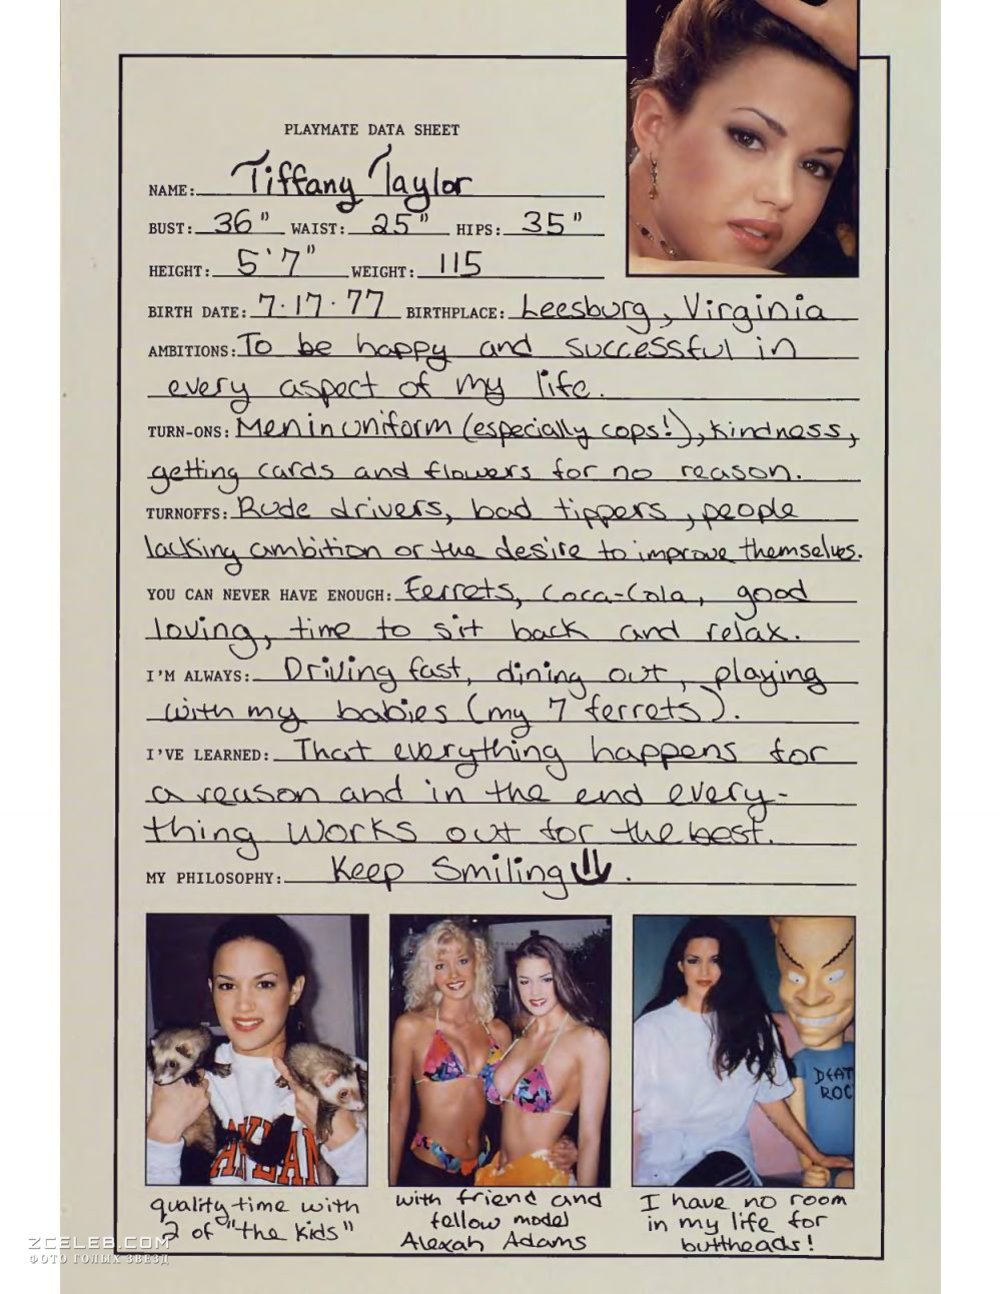 PLAYMATE DATA SHEET
NAME: Tiffany Taylor
BUST: 36" WAIST: 25" HIPS: 35"
HEIGHT: 5'7" WEIGHT: 115
BIRTH DATE: 7·17·77 BIRTHPLACE: Leesburg, Virginia
AMBITIONS: To be happy and successful in
every aspect of my life.
TURN-ONS: Men in uniform (especially cops!), kindness,
getting cards and flowers for no reason.
TURNOFFS: Rude drivers, bad tippers, people
lacking ambition or the desire to improve themselves.
YOU CAN NEVER HAVE ENOUGH: Ferrets, Coca-Cola, good
loving, time to sit back and relax.
I'M ALWAYS: Driving fast, dining out, playing
with my babies (my 7 ferrets).
I'VE LEARNED: That everything happens for
a reason and in the end every-
thing works out for the best.
MY PHILOSOPHY: Keep Smiling.
DEAT
ROC
quality time with
2 of "the kids"
with friend and
fellow model
Alexah Adams
I have no room
in my life for
buttheads!
ZCELEB.COM
ФОТО ГОЛЫХ ЗВЕЗД